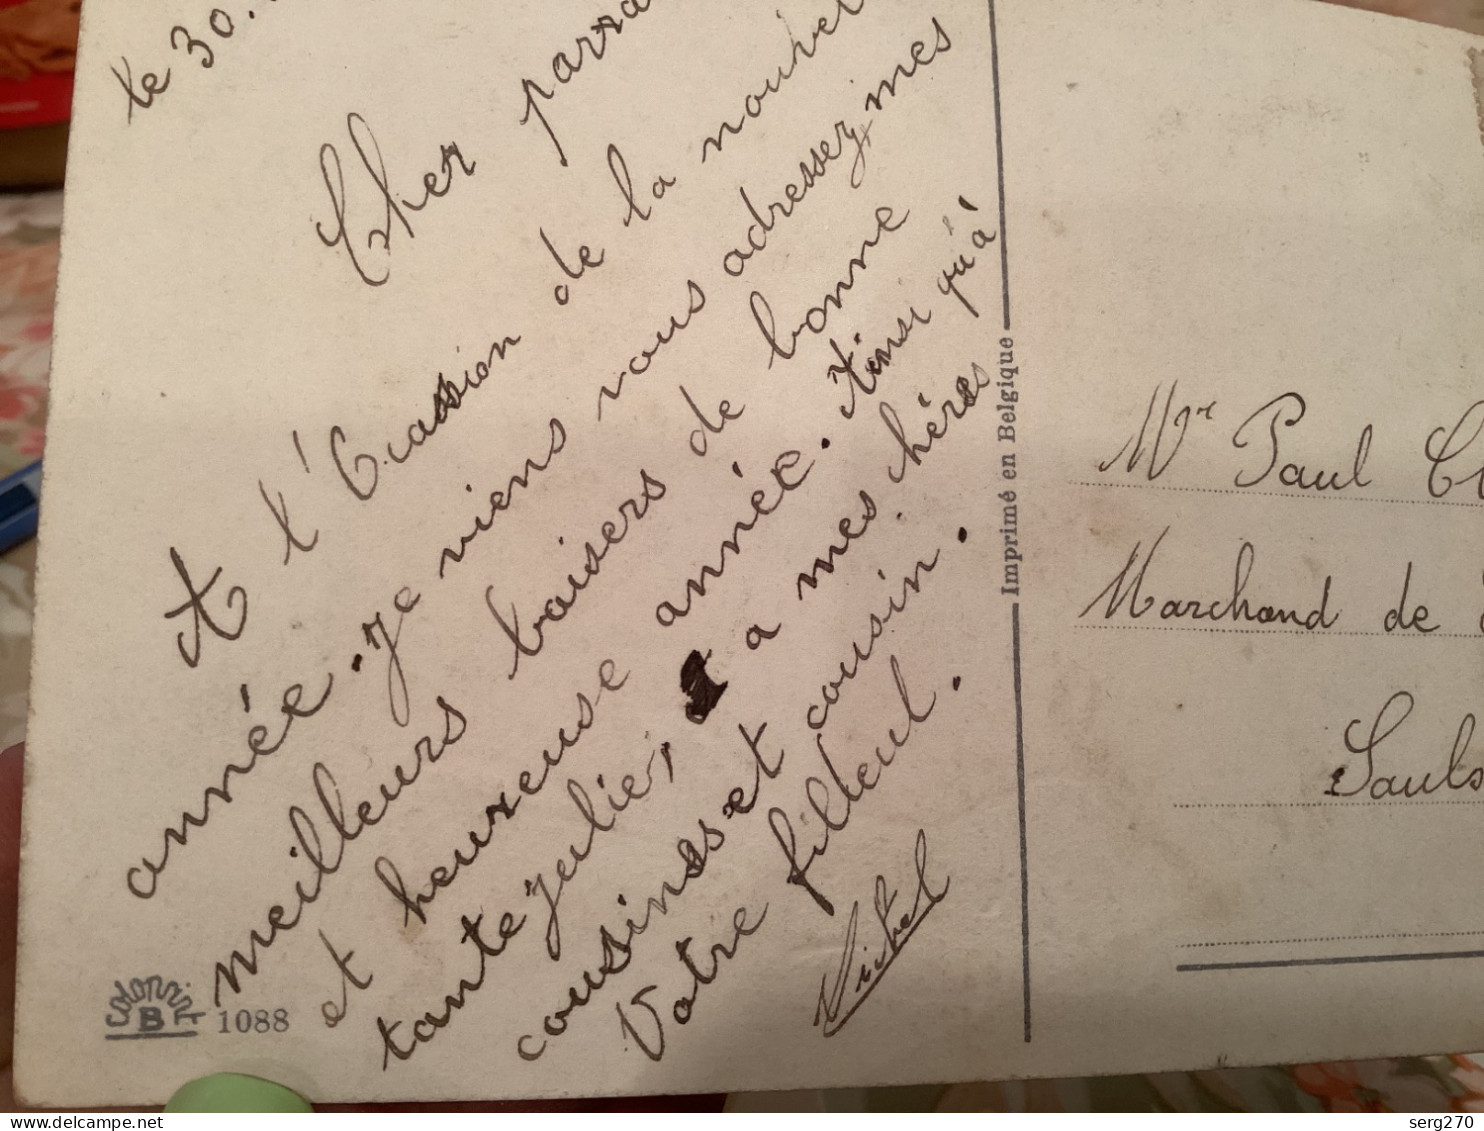 le 30.
Cher parra
A l'Ocassion de la nouvel
année. Je viens vous adressez, mes
meilleurs baisers de bonne
et heureuse année. Ainsi qu'à
tante Julie, a mes chéres
cousines et cousin.
Votre filleul.
Michel
Colorprint
B
1088
Imprimé en Belgique
Mr Paul
Marchand de
Sauls
serg270